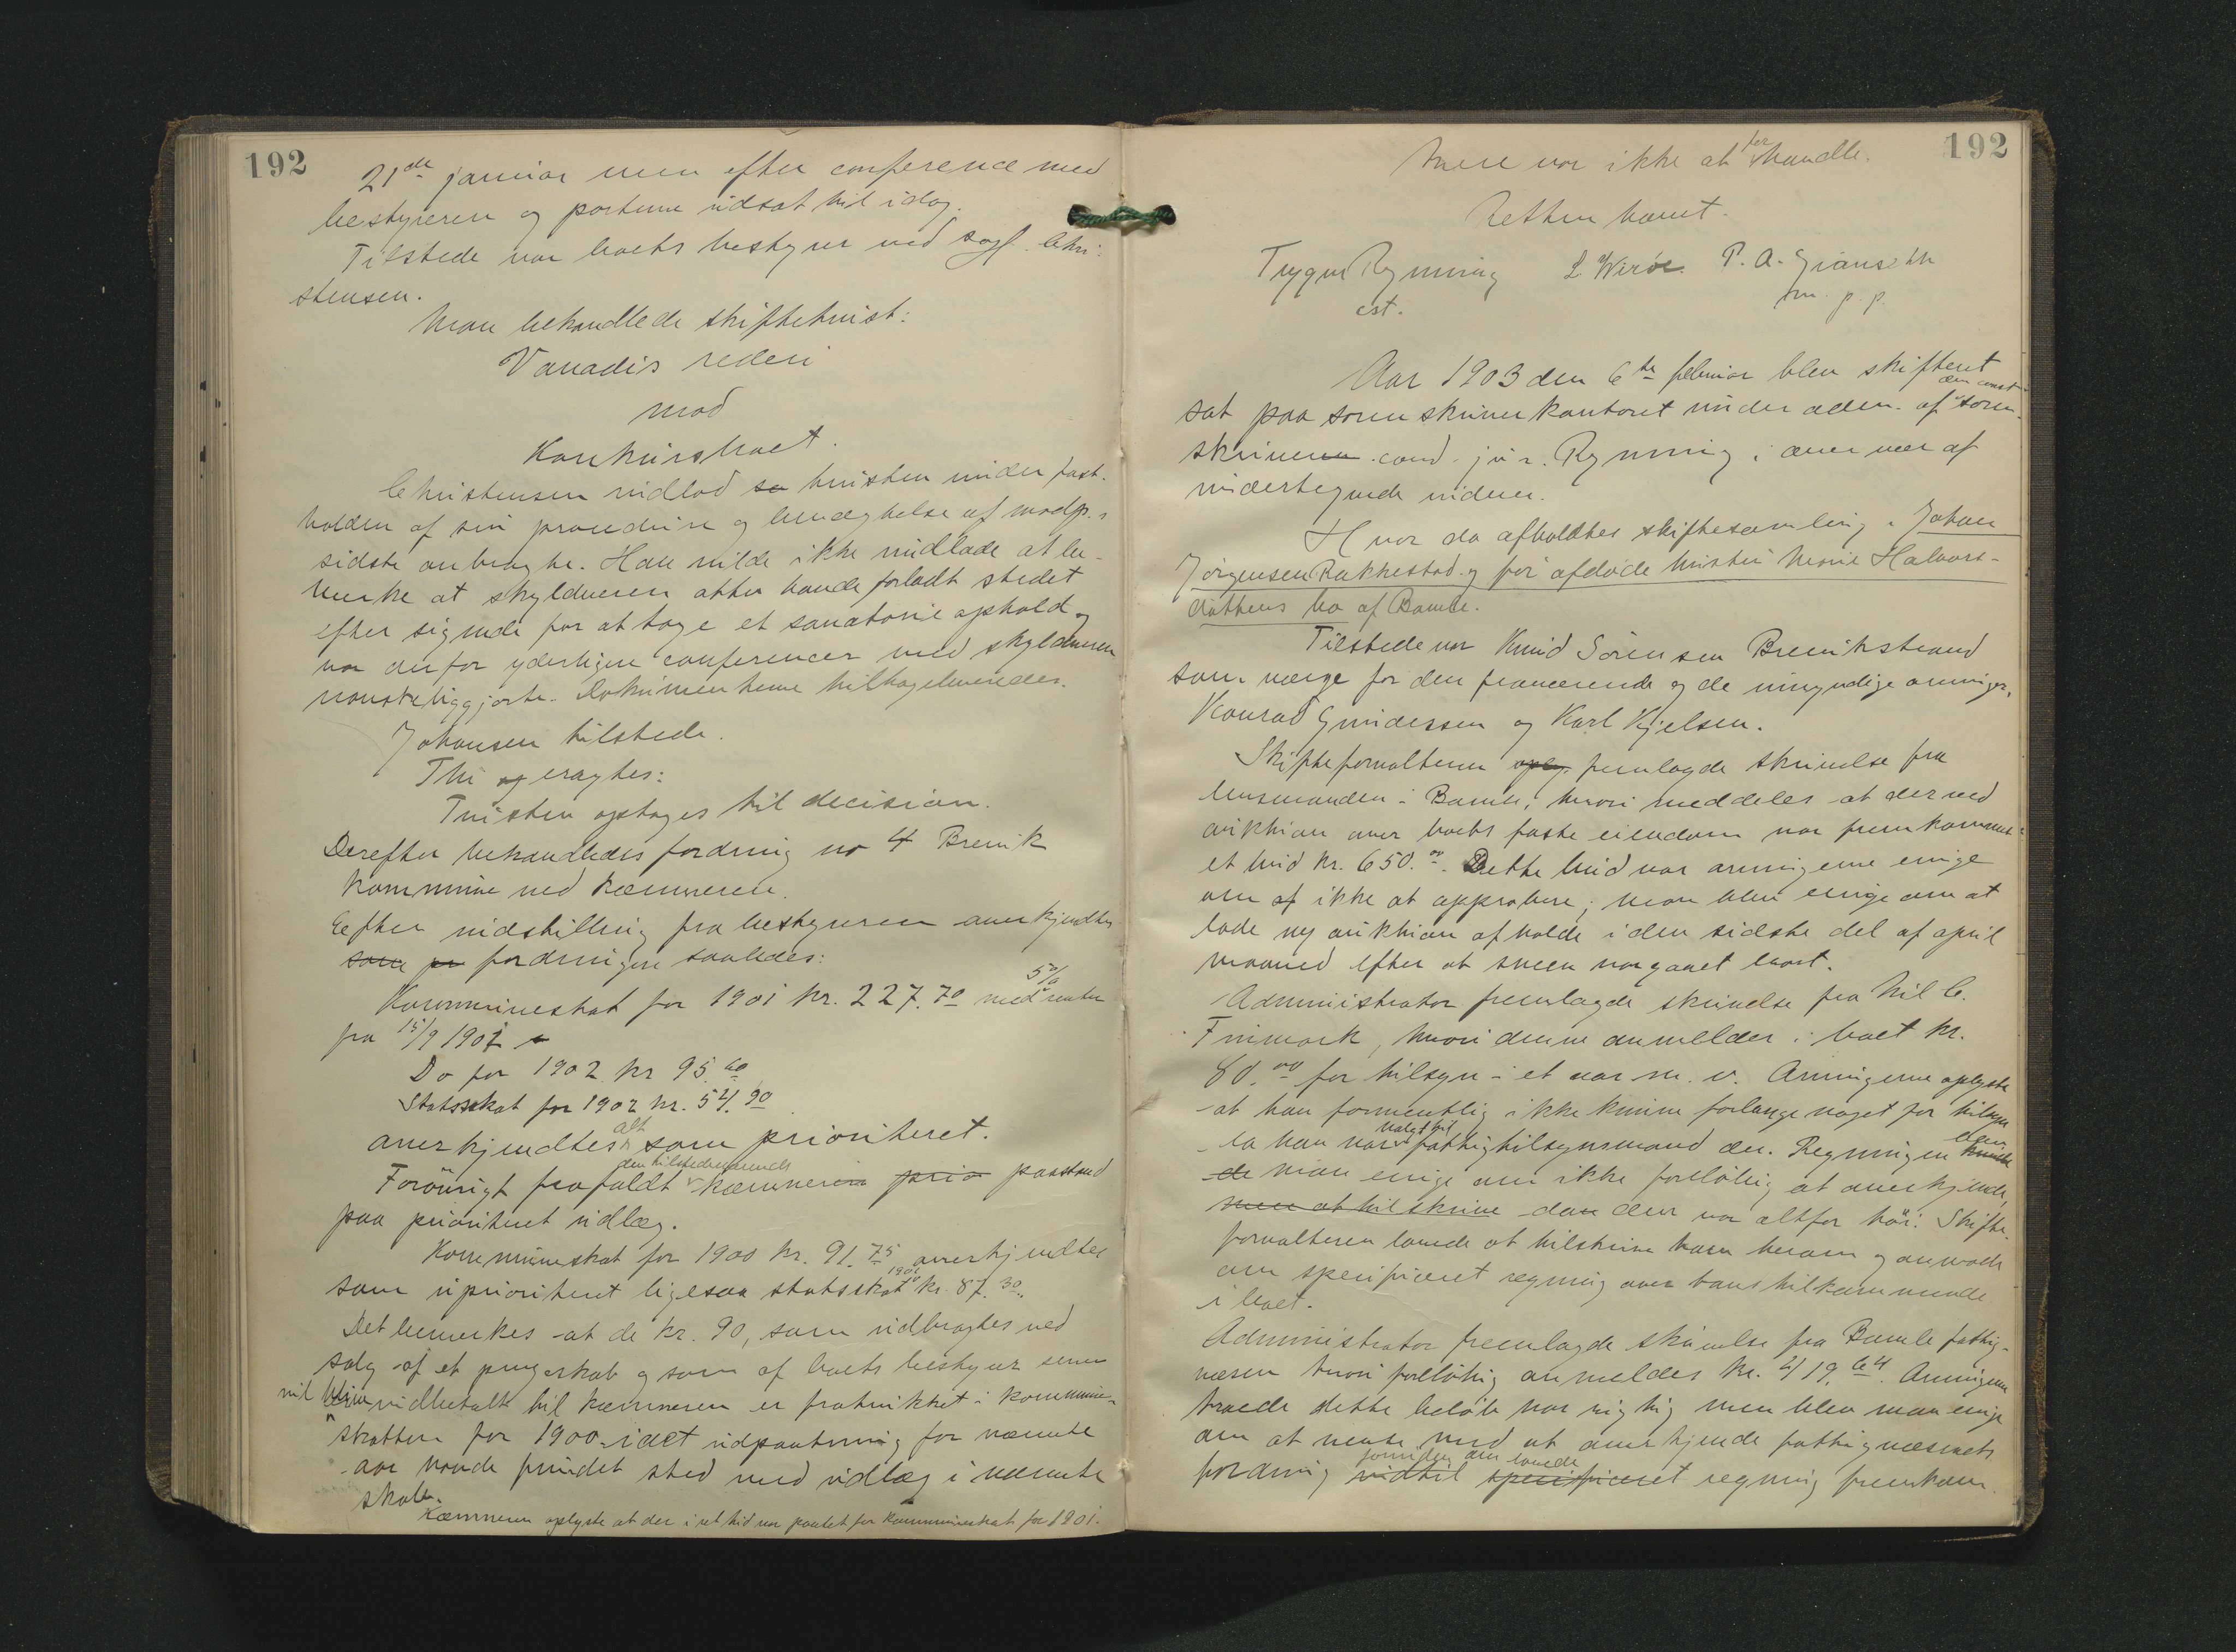 192
21de januar men efter conference med
bestyreren og parterne udsat til idag.
Tilstede var boets bestyrer ved sagf. Chri-
stensen.
Man behandlede skiftetvist:
Vanadis rederi
mod
Konkursboet.
Christensen indlod tvisten under fast-
holden af sin procedure og benægtelse af modp.s
sidste anbragte. Han vilde ikke undlade at be-
merke at skyldneren atter havde forladt stedet
efter sigende for at tage et sanatorie ophold og
var derfor yderligere conferencer med skyldneren
vanskeliggjorte. Dokumenterne tilbageleveredes.
Johansen tilstede.
Thi eragtes:
Tvisten optages til decision.
Derefter behandledes fordring no 4 Brevik
kommune ved kæmneren.
Efter indstilling fra bestyreren anerkjendtes
som fordringen saaledes:
Kommuneskat for 1901 kr. 227.70 med 5% renter
fra 15/9 1901
Do for 1902 kr 95.60
Statsskat for 1902 kr. 54.90
anerkjendtes alt som prioriteret.
Forøvrigt frafaldt den tilstedeværende kæmneren prio paastand
paa prioritet udlæg.
Kommuneskat for 1900 kr. 91.75 anerkjendtes
som uprioriteret ligesaa statsskat 1901 kr. 87.30.
Det bemerkes at de kr. 90, som udbragtes ved
salg af et pengeskab og som af boets bestyrer senere
vil blive udbetalt til kæmneren er fratrukket i kommune-
skatten for 1900 idet udpantning for nævnte
aar havde fundet sted med udlæg i nævnte
skab.
Kæmneren oplyste at der i ret tid var pantet for kommuneskat for 1901.
192
Mere var ikke at forhandle.
Retten hævet.
Trygve Rynning L Wirøe. P. A.
cst. m. p. p.
Aar 1903 den 6te februar blev skifteret
sat paa sorenskriverkontoret under adm. af den const. soren-
skriver cand. jur. Rynning i overvær af
undertegnede vidner.
Hvor da afholdtes skiftesamling i Johan
Jørgensen Rakkestad og før afdøde hustru Marie Halvors-
datters bo af Bamle.
Tilstede var Knud Sørensen Brevikstrand
som værge for den fraværende og de umyndige arvinger,
Konrad Gundersen og Karl Kjelsen.
Skifteforvalteren opl. fremlagde skrivelse fra
lensmanden i Bamle, hvori meddeles at der ved
auktion over boets faste eiendom var fremkommet
et bud kr. 650.00. Dette bud var arvingerne enige
om at ikke at approbere; man blev enige om at
lade ny auktion afholde i den sidste del af april
maaned efter at sneen var gaaet bort.
Administrator fremlagde skrivelse fra Nil C.
Trimork, hvori denne anmelder i boet kr.
80.00 for tilsyn i et aar m. v. Arvingerne oplyste
at han formentlig ikke kunne forlange noget for tilsyn
da han var valgt til fattigtilsynsmand der. Regningen blev
de man enige om ikke foreløbig at anerkjende,
men at tilskrive da den var altfor høi. Skifte-
forvalteren lovede at tilskrive ham herom og anmode
om specificeret regning over hans tilkommende
i boet.
Administrator fremlagde skrivelse fra Bamle fattig-
væsen hvori foreløbig anmeldes kr. 419.64. Arvingerne
troede dette beløb var rigtig men blev man enige
om at vente med at anerkjende fattigvæsenets
fordring indtil specificeret regning fremkom.